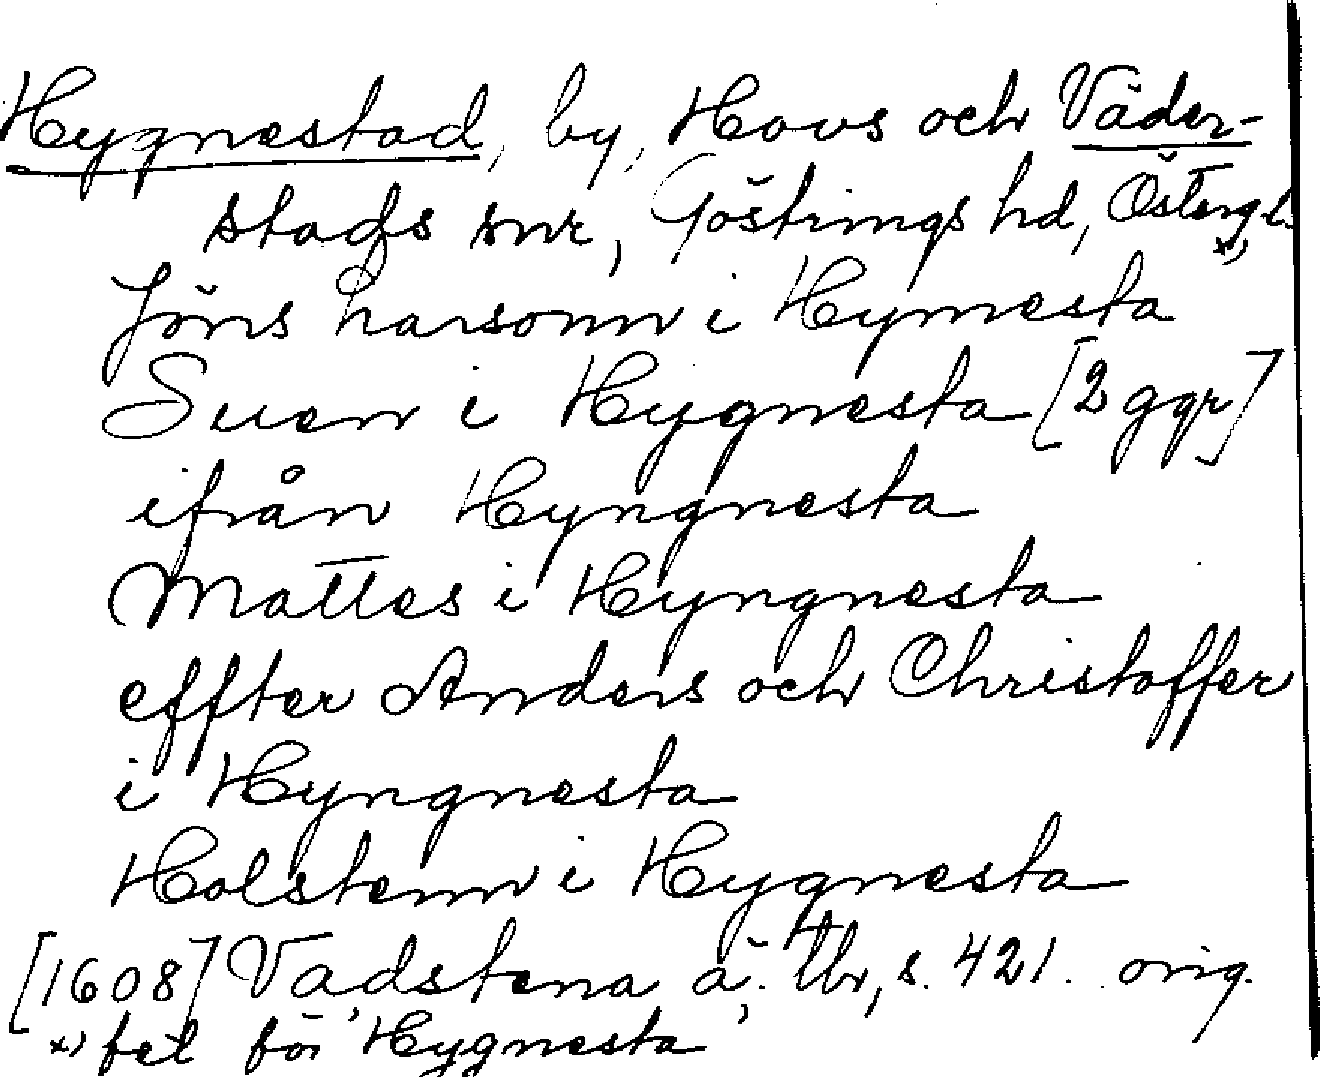 Hygnestad, by, Hovs och Väder-
stads snr, Göstrings hd, Östergl.
Jöns harsonn i Hymesta x)
Suen i Hygnesta [2 ggr]
ifrån Hyngnesta
Mattes i Hyngnesta
effter Anders och Christoffer
i Hyngnesta
Holstenn i Hygnesta
[1608] Vadstena ä. tbr, s. 421. orig.
x) fel för Hygnesta